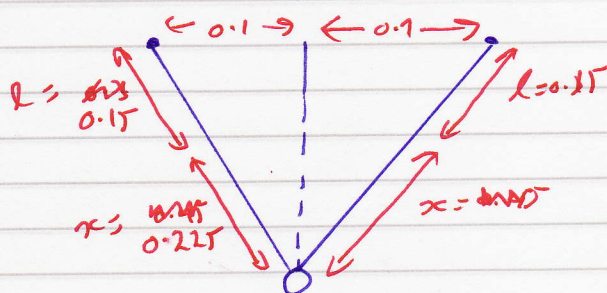 0.1 0.1
l =
0.15
l=0.15
x =
0.225
x =